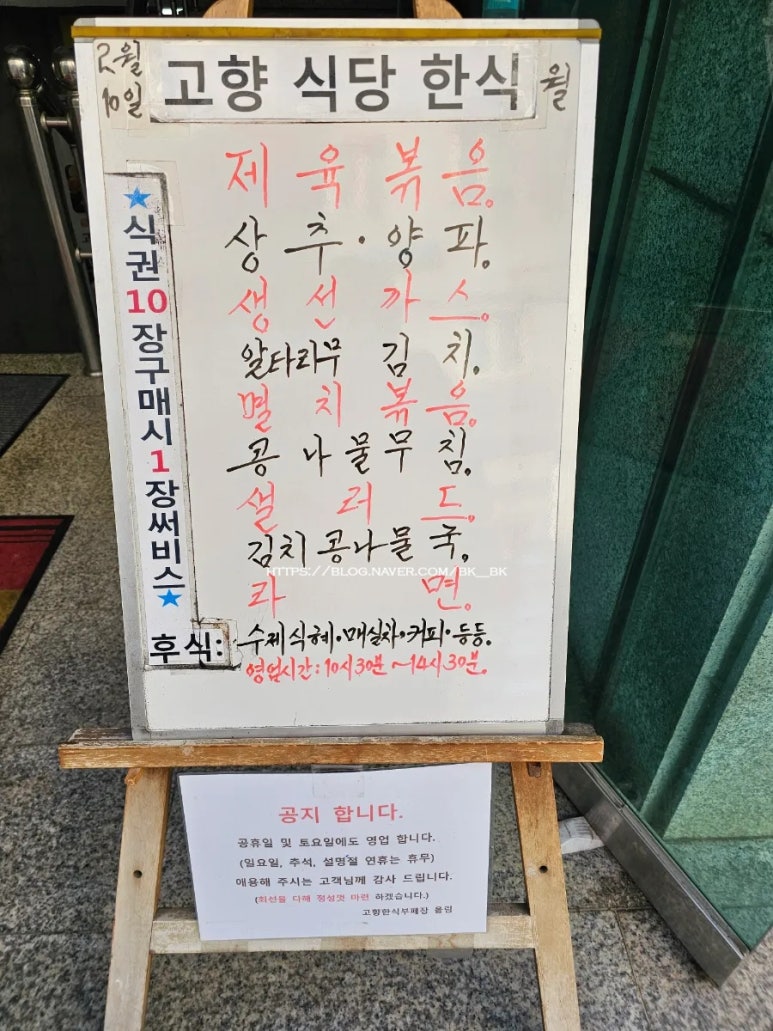 2월
10일
고향 식당 한식
월
제육볶음.
상추·양파.
생선까스.
알타리무 김치.
멸치볶음.
콩나물무침.
샐러드.
김치콩나물국.
라면.
★식권10장구매시1장써비스★
후식: 수제식혜·매실차·커피·등등.
영업시간:10시30분~14시30분.
HTTPS://BLOG.NAVER.COM/BK__BK
공지 합니다.
공휴일 및 토요일에도 영업 합니다.
(일요일, 추석, 설명절 연휴는 휴무)
애용해 주시는 고객님께 감사 드립니다.
(최선을 다해 정성껏 마련 하겠습니다.)
고향한식부페장 올림